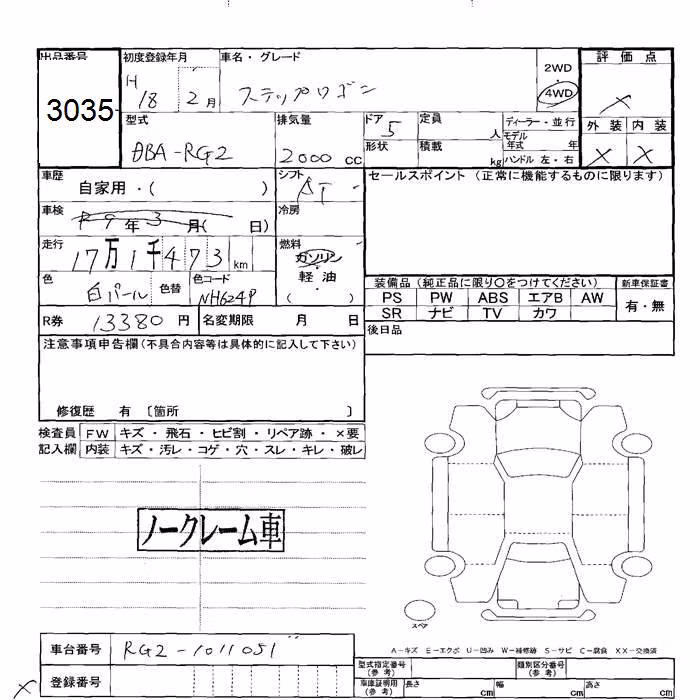 出品番号 初度登録年月 車名・グレード 2WD 評価点
3035 H 18 2月 ステップワゴン 4WD X
型式 排気量 ドア 定員 ディーラー・並行 外装 内装
DBA-RG2 2000 cc 5 人 モデル年式 年 X X
形状 積載 kg ハンドル 左・右
車歴 自家用・( ) シフト AT セールスポイント (正常に機能するものに限ります)
車検 R9年3月( 日) 冷房
走行 17万1千473 km 燃料 ガソリン・軽油
色 白パール 色替 色コード NH624P ( )
装備品 (純正品に限り〇をつけてください) 新車保証書
PS PW ABS エアB AW 有・無
SR ナビ TV カワ
R券 13380円 名変期限 月 日 後日品
注意事項申告欄(不具合内容等は具体的に記入して下さい)
修復歴 有 〔箇所 〕
検査員 FW キズ・飛石・ヒビ割・リペア跡・×要
記入欄 内装 キズ・汚レ・コゲ・穴・スレ・キレ・破レ
ノークレーム車
スペア
A-キズ E-エクボ U-凹み W-補修跡 S-サビ C-腐食 XX-交換済
車台番号 RG2-1011051
型式指定番号(参考) 類別区分番号(参考)
X 登録番号
車庫証明用(参考) 長さ cm 幅 cm 高さ cm